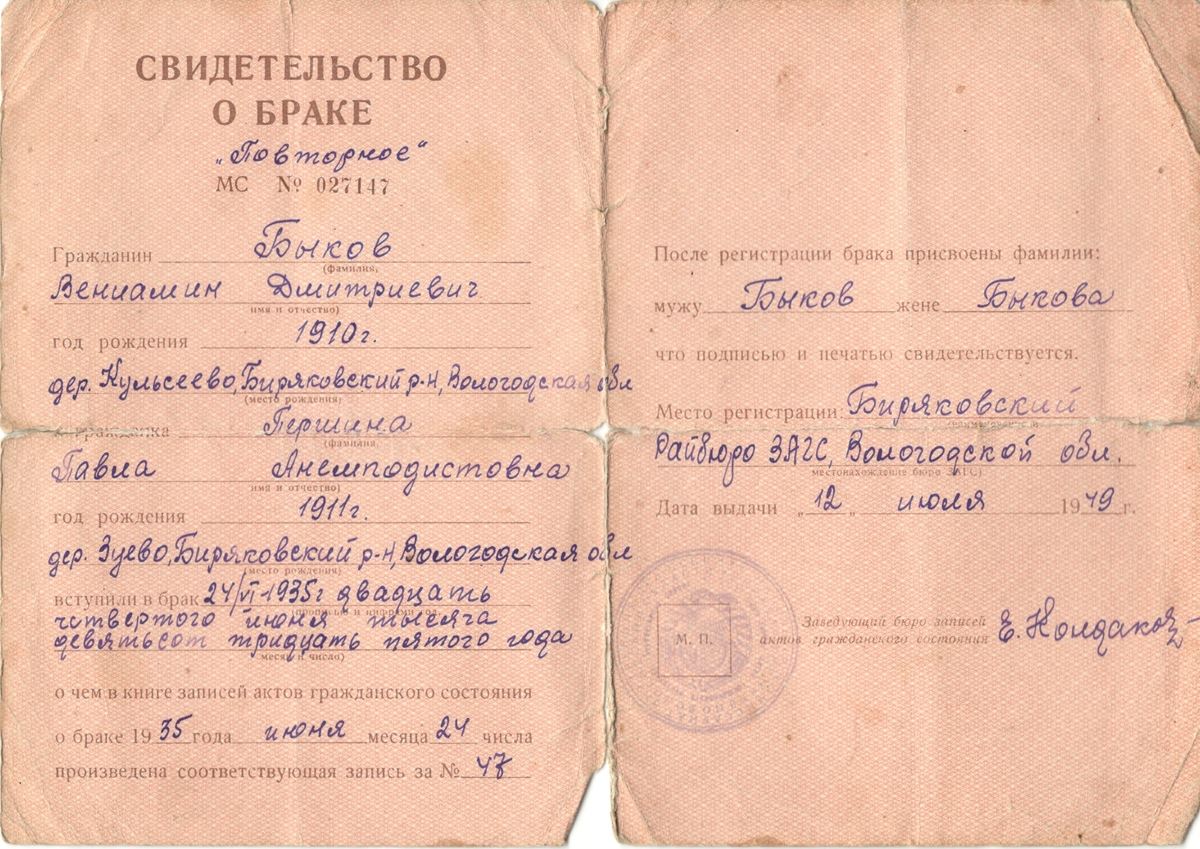 СВИДЕТЕЛЬСТВО
О БРАКЕ
„Повторное“
МС № 027147
Гражданин Быков
(фамилия)
Вениамин Дмитриевич
имя и отчество)
год рождения 1910г.
дер. Кульсеево, Биряковский р-н, Вологодская обл
(место рождения)
и гражданка Першина
(фамилия)
Павла Анемподистовна
имя и отчество)
год рождения 1911г.
дер. Зуево, Биряковский р-н, Вологодская обл
(место рождения)
вступили в брак 24/VI-1935г двадцать
(прописью и цифрами год,
четвертого июня тысяча
девятьсот тридцать пятого года
месяц и число)
о чем в книге записей актов гражданского состояния
о браке 1935 года июня месяца 24 числа
произведена соответствующая запись за № 47
После регистрации брака присвоены фамилии:
мужу Быков жене Быкова
что подписью и печатью свидетельствуется.
Место регистрации: Биряковский
(наименование и
Райбюро ЗАГС, Вологодской обл.
местонахождение бюро ЗАГС)
Дата выдачи „12„ июля 1949 г.
М. П.
Заведующий бюро записей
актов гражданского состояния